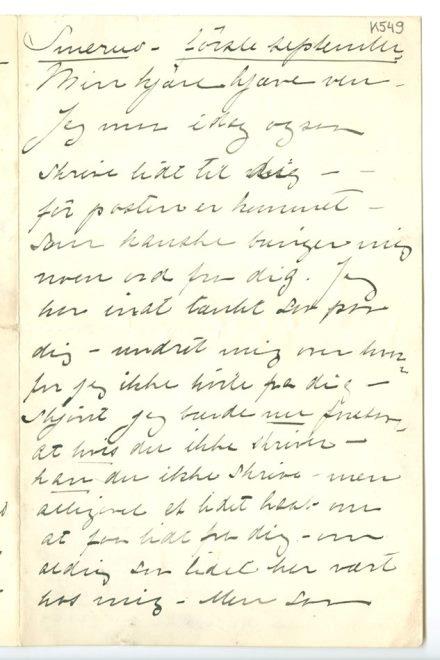 K549
første september
Min kjære kjære ven -
Jeg maa idag ogsaa
skrive lidt til dig - -
før posten er kommet -
som kanske bringer mig
noen ord fra dig. Jeg
har tænkt saa paa
dig - undret mig over hvor-
for jeg ikke hørte fra dig -
skjønt jeg burde forstaa,
at hvis du ikke skriver -
kan du ikke skrive - men
alligevel et lidet haab om
at faa lidt fra dig - om
aldrig saa lidet har vært
hos mig - Men saa